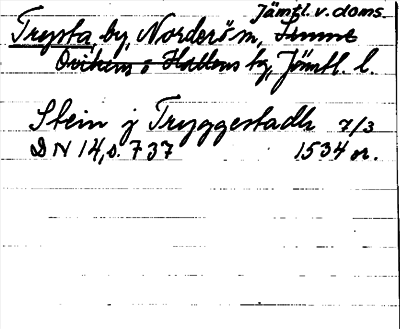 Jämtl. v. doms.
Trysta, by, Norderö sn, Sunne
Ovikens o Hallens tg, Jämtl. l.
Stein j Tryggestadh 7/3
DN 14, s. 737 1534 or.